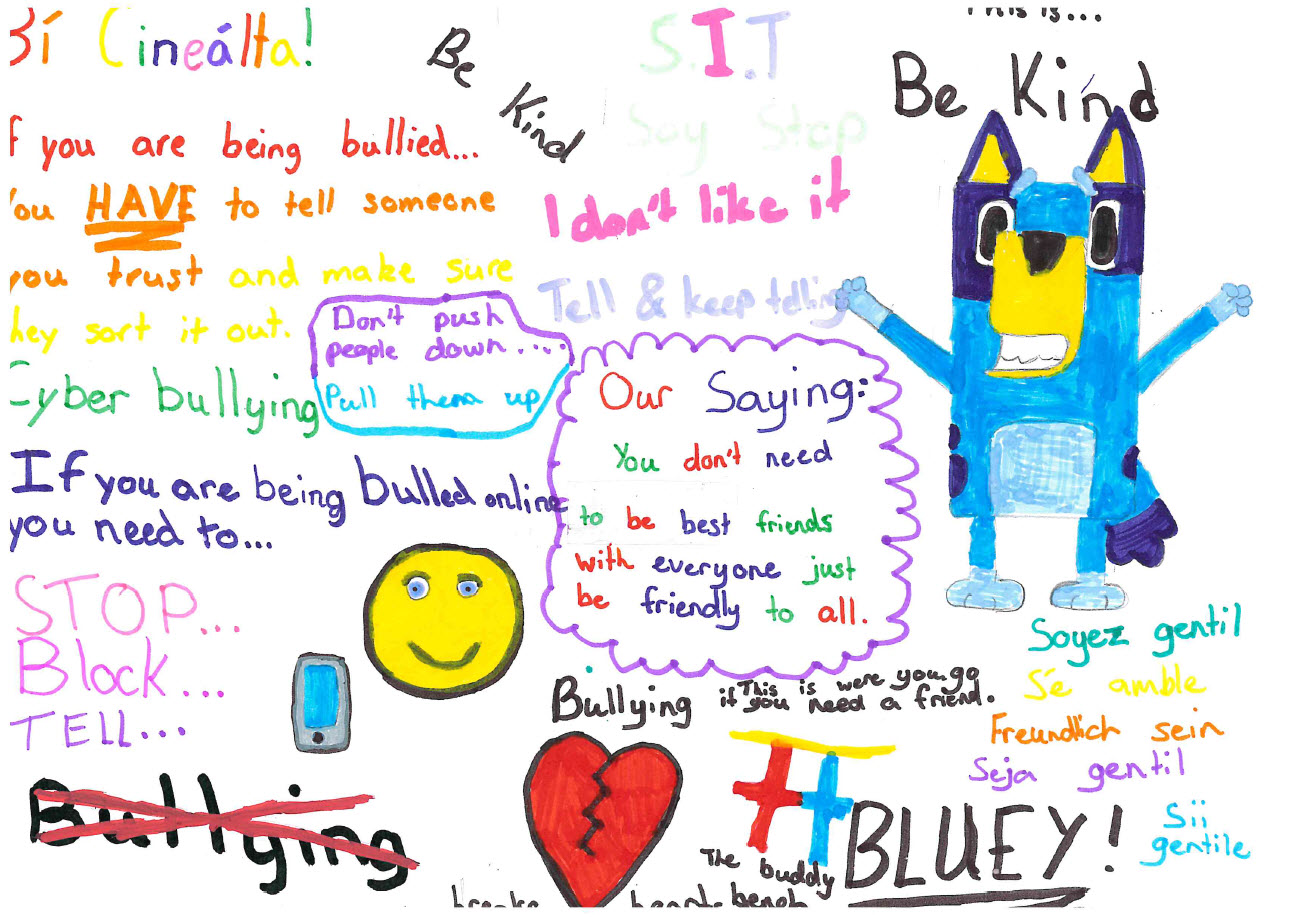 Bí Cineálta!
f you are being bullied...
You HAVE to tell someone
you trust and make sure
hey sort it out.
Be Kind
S.I.T
Say Stop
I don't like it
Tell & keep telling
This is...
Be Kind
Don't push
people down....
Pull them up
Cyber bullying
If you are being bulled online
you need to...
STOP...
Block...
TELL...
Bullying
Our Saying:
You don't need
to be best friends
with everyone just
be friendly to all.
Bullying
breaks hearts
This is were you go
if you need a friend.
The buddy
bench
BLUEY!
Soyez gentil
Sé amble
Freundlich sein
Seja gentil
Sii
gentile